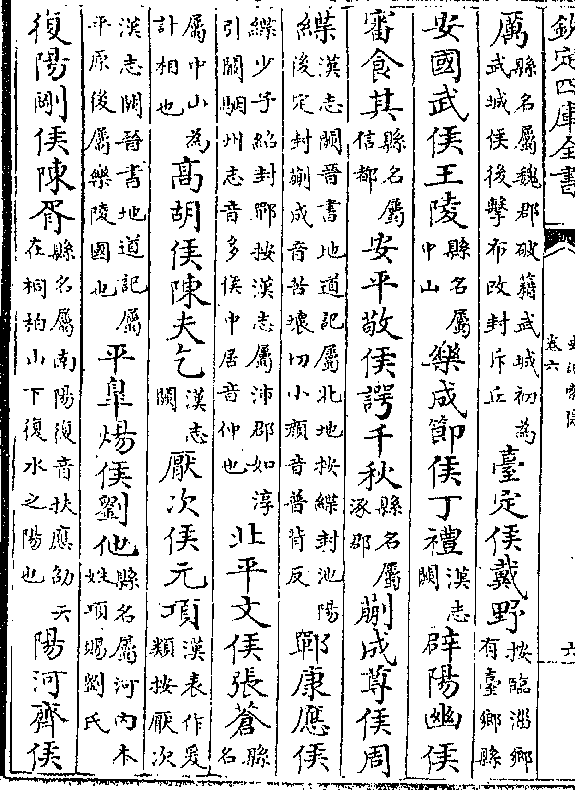 欽定四庫全書
史記索隱
卷六
六
厲縣名屬魏郡破籍武城初為武城侯後擊布改封斥丘臺定侯戴野按臨淄鄉有臺鄉縣
安國武侯王陵縣名屬中山樂成節侯丁禮漢志闕辟陽幽侯
審食其縣名屬信都安平敬侯諤千秋縣名屬涿郡蒯成尊侯周
緤漢志闕晉書地道記屬北地按緤封池陽後定封蒯成音苦壞切小顏音普背反鄲康應侯
緤少子紹封鄲按漢志屬沛郡如淳引闞駰州志音多侯中居音仲也北平文侯張蒼縣名
屬中山為計相也高胡侯陳夫乞漢志闕厭次侯元項漢表作爰類按厭次
漢志闕晉書地道記屬平原後屬樂陵國也平皐煬侯劉他縣名屬河內本姓項賜劉氏
復陽剛侯陳胥縣名屬南陽復音扶應劭云在桐柏山下復水之陽也陽河齊侯